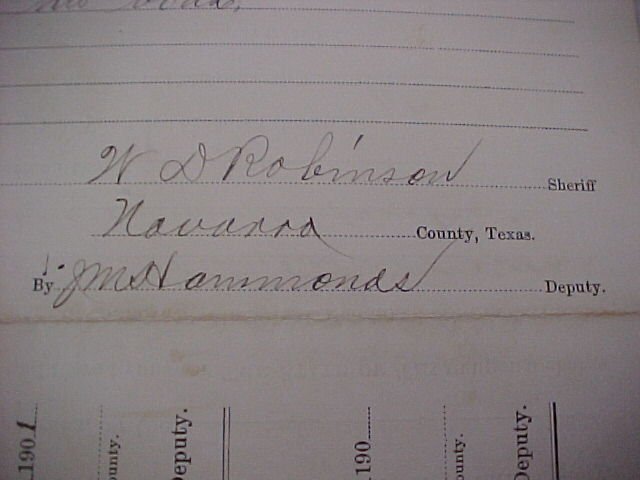 no bond.
W D Robinson Sheriff
Navarro County, Texas.
By J M Hammonds Deputy.
1901
ounty.
Deputy.
190
ounty.
Deputy.